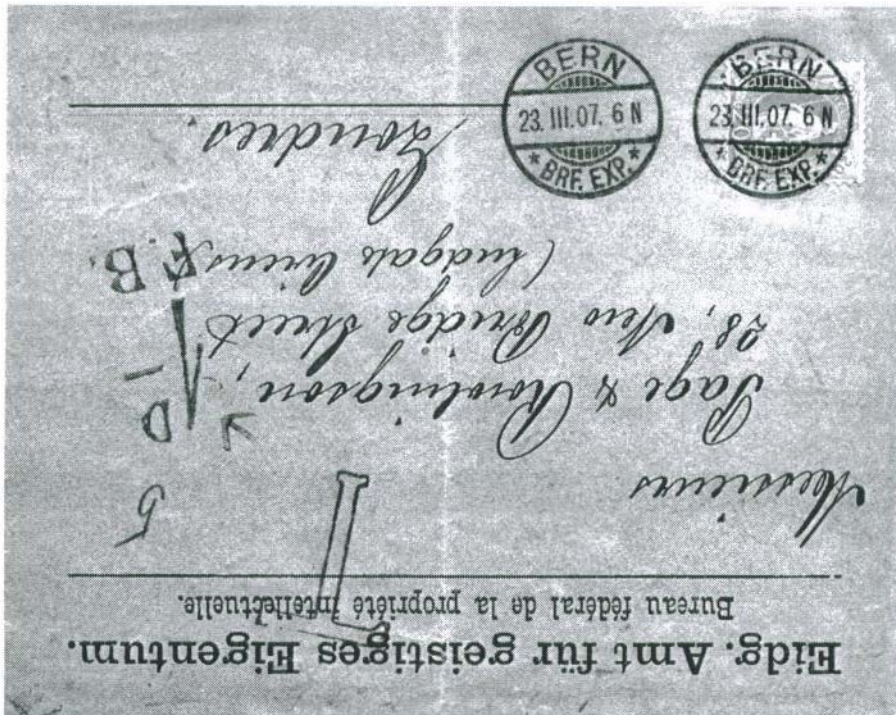 Eidg. Amt für geistiges Eigentum.
Bureau fédéral de la propriété intellectuelle.
Messieurs
Page & Rowlingson,
28, New Bridge Street
(Ludgate Circus)
Londres.
5
D
F.B.
T
BERN
23. III. 07. 6 N
* BRF. EXP. *
BERN
23. III. 07. 6 N
* BRF. EXP. *